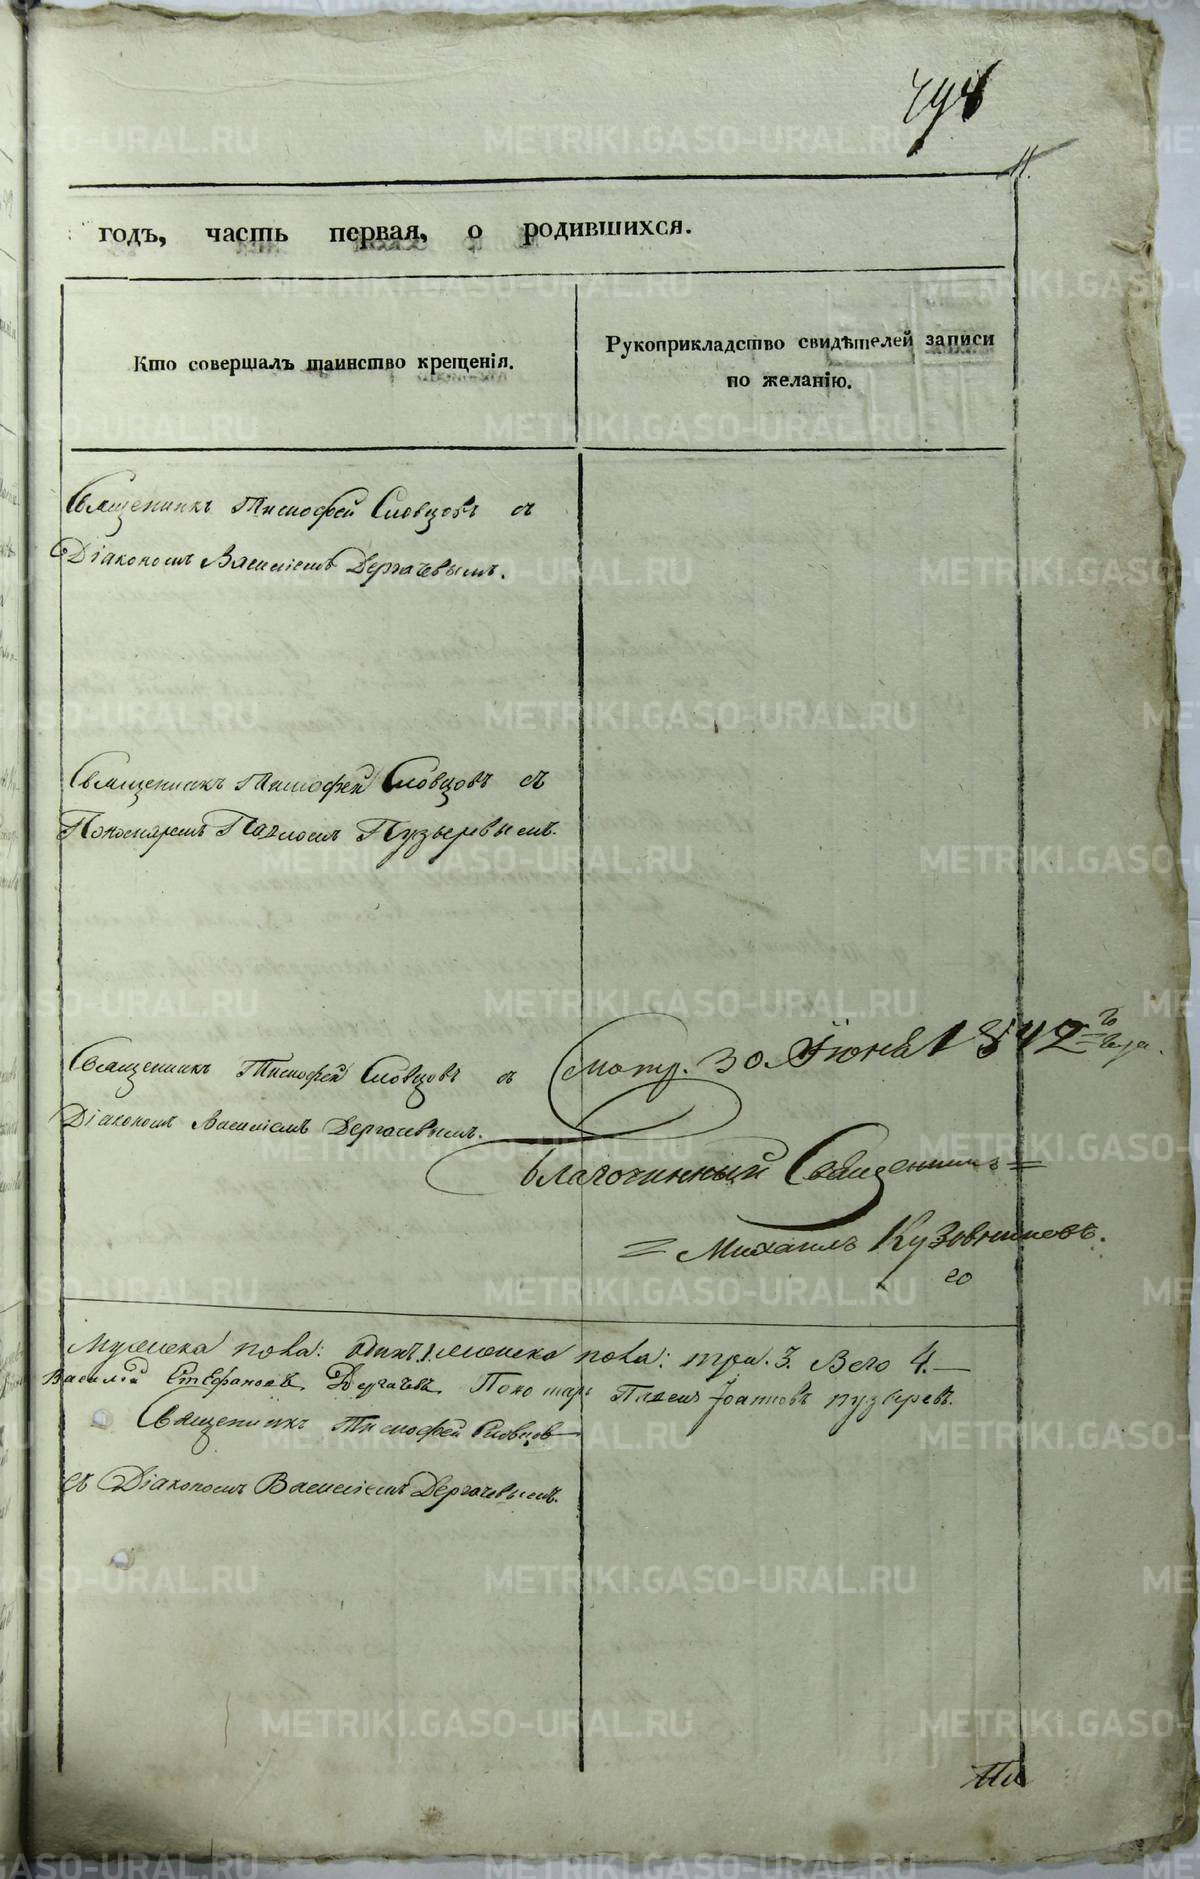 494
11.
годъ, часть первая, о родившихся.
Кто совершалъ таинство крещенія.
Рукоприкладство свидѣтелей записи
по желанію.
Священникъ Тимофей Словцовъ съ
Діакономъ Василіемъ Дергачевымъ.
Священникъ Тимофей Словцовъ съ
Пономаремъ Павломъ Пузыревымъ.
Священникъ Тимофей Словцовъ съ
Діакономъ Василіемъ Дергачевымъ.
Смотр. 30. Іюня 1842 года.
Благочинный Священникъ
Михаилъ Кузовниковъ.
Мужеска пола: одинъ. 1. женска пола: три. 3. Всего 4.
Василій Стефановъ Дергачевъ Пономарь Павелъ Іоанновъ Пузыревъ.
Священникъ Тимофей Словцов
съ Діакономъ Василіемъ Дергачевымъ.
METRIKI.GASO-URAL.RU